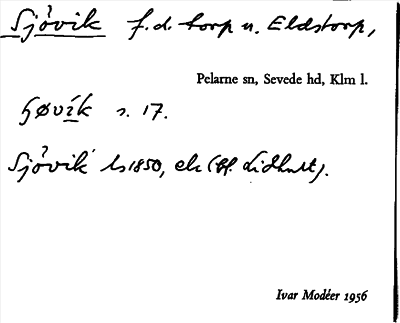 Sjövik f.d. torp u. Eldstorp,
Pelarne sn, Sevede hd, Klm l.
ɧøvik s. 17.
Sjövik ls 1850, ek (bl. Lidhult).
Ivar Modéer 1956